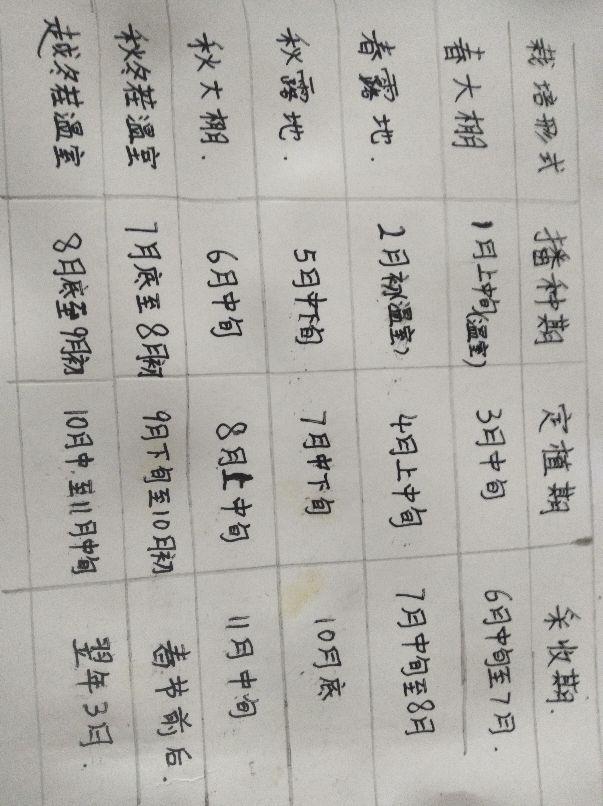 栽培形式 播种期 定植期 采收期.
春大棚 1月上中旬(温室) 3月中旬 6月中旬至7月.
春露地. 2月初(温室) 4月上中旬 7月中旬至8月
秋露地. 5月中下旬 7月中下旬 10月底
秋大棚. 6月中旬 8月上中旬 11月中旬
秋冬茬温室 7月底至8月初 9月下旬至10月初 春节前后.
越冬茬温室 8月底至9月初 10月中至11月中旬 翌年3月.